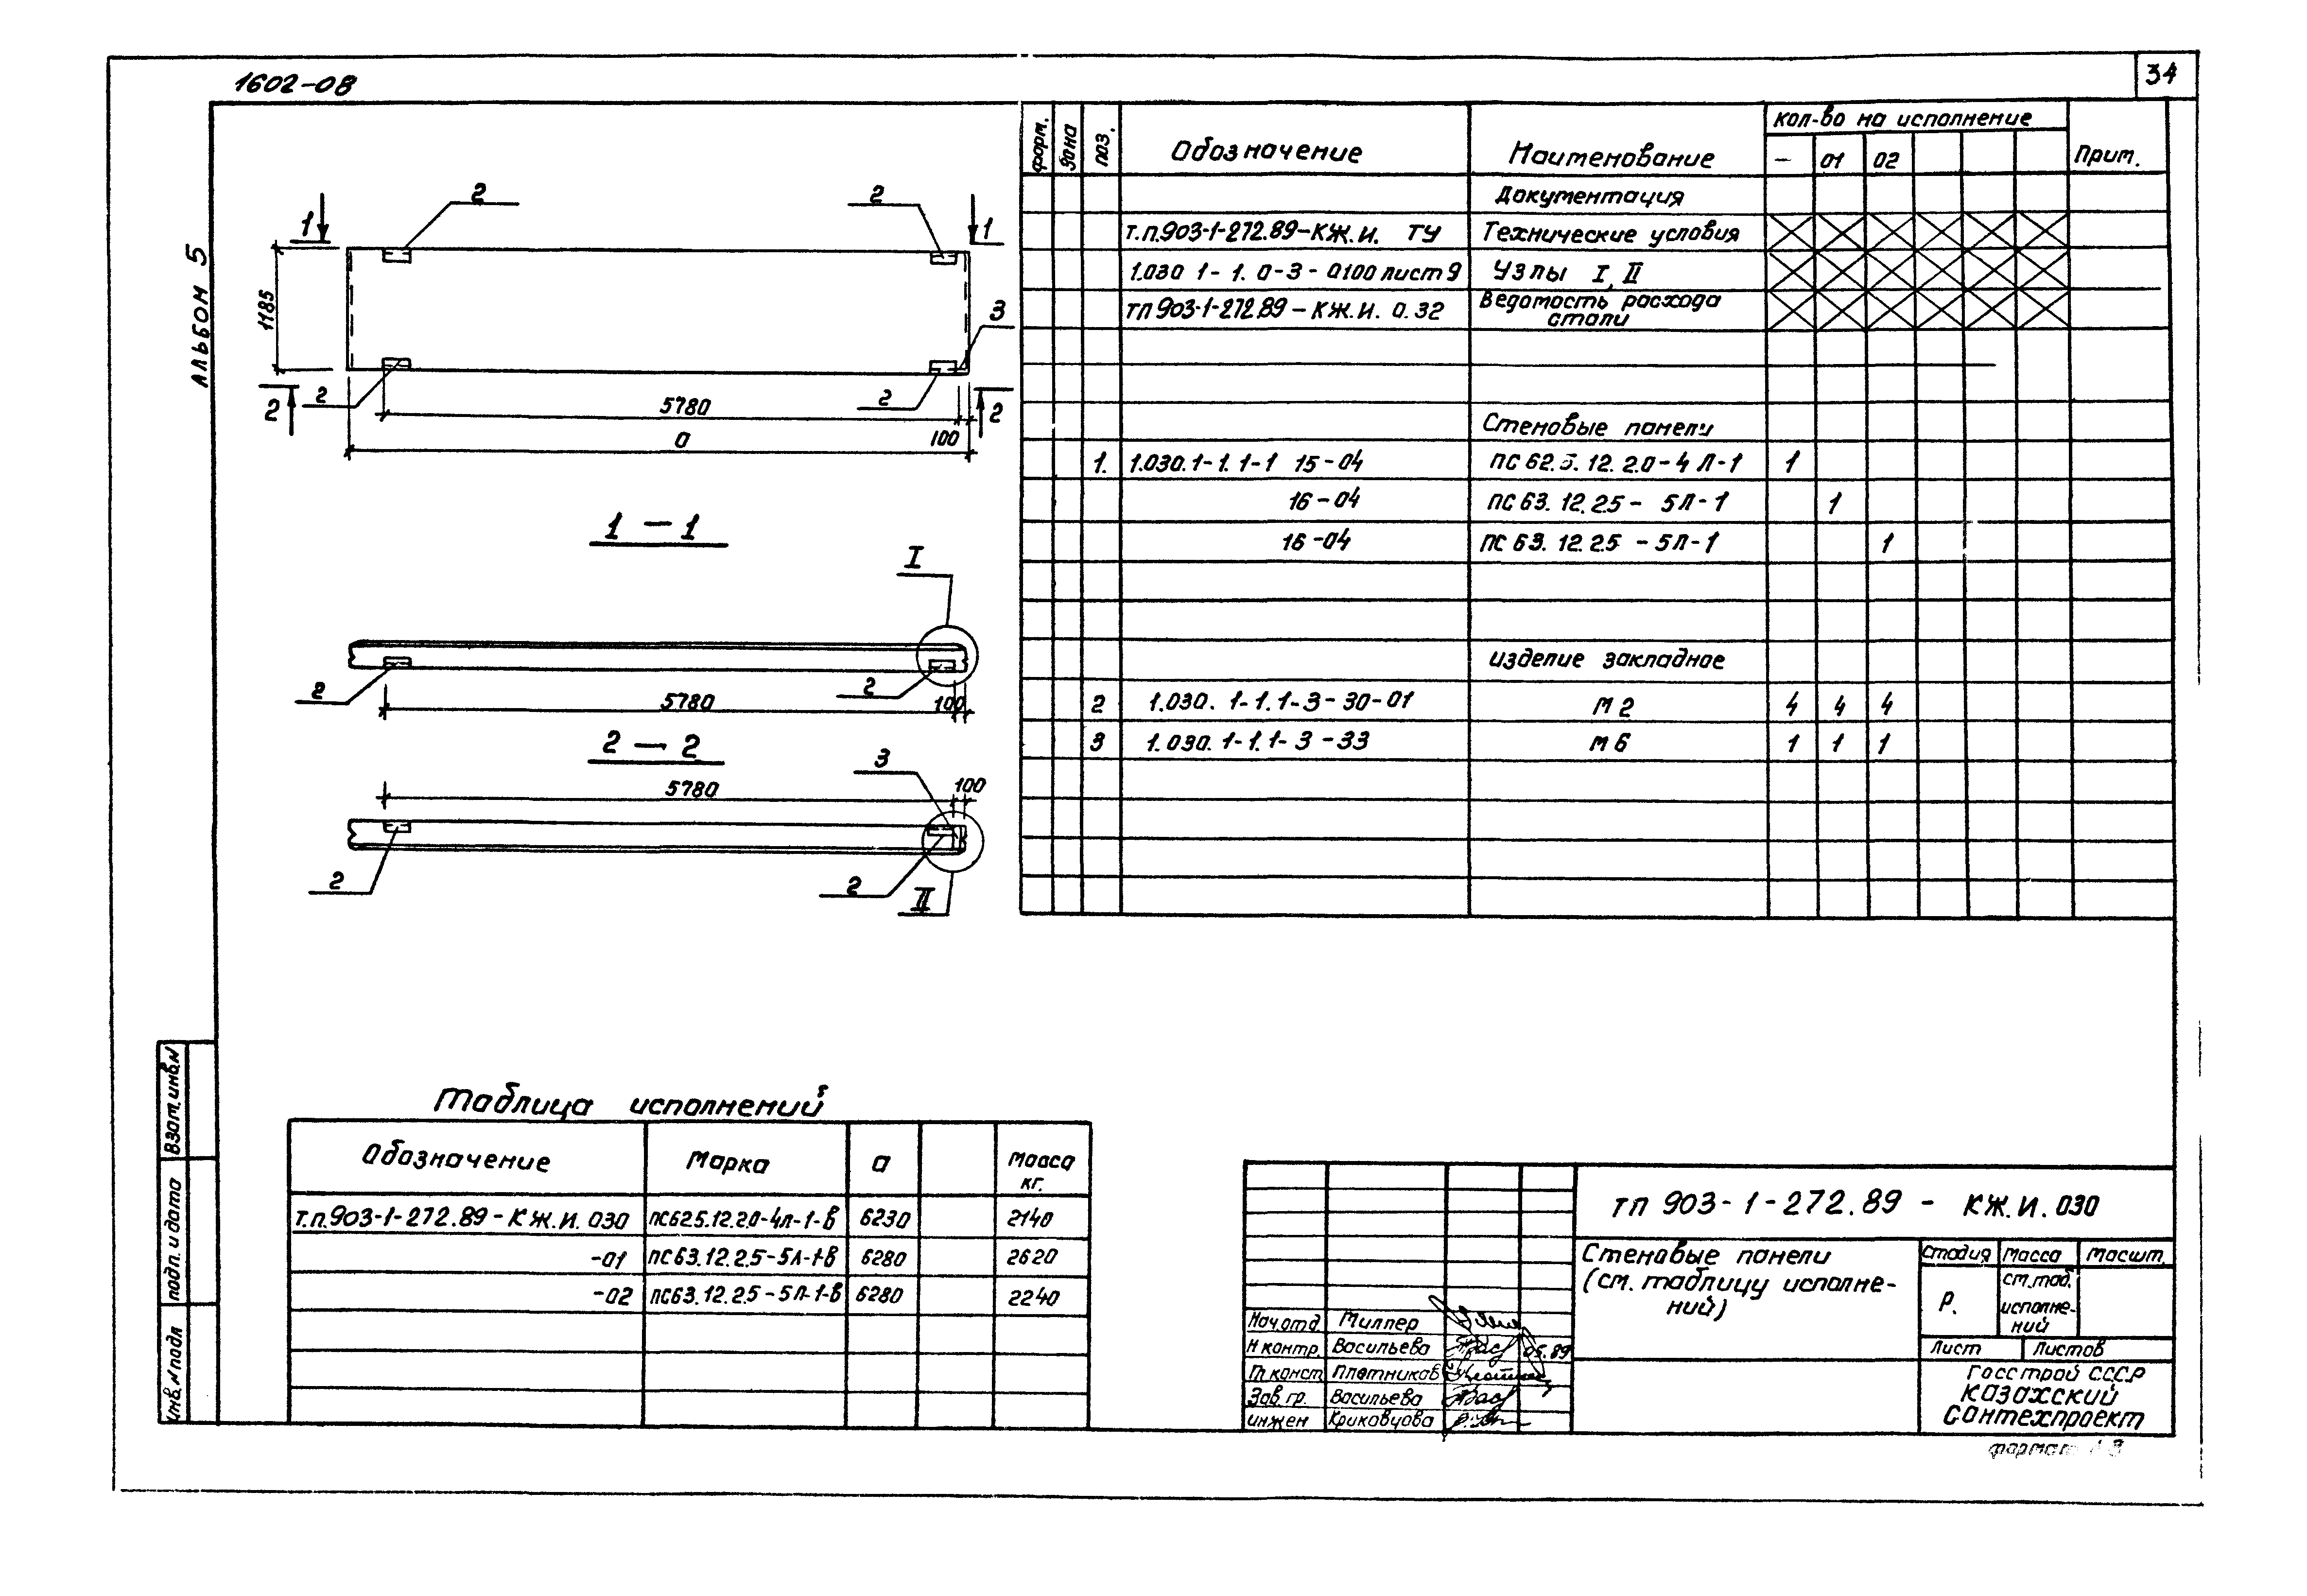 1602-08
34
Альбом 5
1 1
2 2
1185
3
2 2
2 2
5780
а 100
1 — 1
I
2 2
5780 100
2 — 2
3
5780 100
2 2
II
форм. зона поз. Обозначение Наименование кол-во на исполнение Прим.
— 01 02
Документация
т.п.903-1-272.89-КЖ.И. ТУ Технические условия
1.030 1-1. 0-3-0100 лист 9 Узлы I, II
тп 903-1-272.89-КЖ.И. 0.32 Ведомость расхода
стали
Стеновые панели
1. 1.030.1-1.1-1 15-04 ПС 62.5.12.2.0-4Л-1 1
16-04 ПС 63.12.2.5-5Л-1 1
16-04 ПС 63.12.2.5-5Л-1 1
изделие закладное
2 1.030.1-1.1-3-30-01 М2 4 4 4
3 1.030.1-1.1-3-33 М6 1 1 1
Таблица исполнений
Обозначение Марка а Масса
кг.
т.п.903-1-272.89-КЖ.И.030 ПС62.5.12.2.0-4Л-1-в 6230 2140
-01 ПС63.12.2.5-5Л-1-в 6280 2620
-02 ПС63.12.2.5-5Л-1-в 6280 2240
Взам.инв.N
подп. и дата
инв.N подл
тп 903-1-272.89 - КЖ.И.030
Стеновые панели
(см. таблицу исполне-
ний)
Стадия Масса Масшт.
Р. см.таб.
исполне-
ний
Лист Листов
Госстрой СССР
Казахский
Сантехпроект
Нач.отд. Миллер
Н контр. Васильева 05.89
Гл.конст Плотников
Зав.гр. Васильева
инжен Криковцова
формат А3